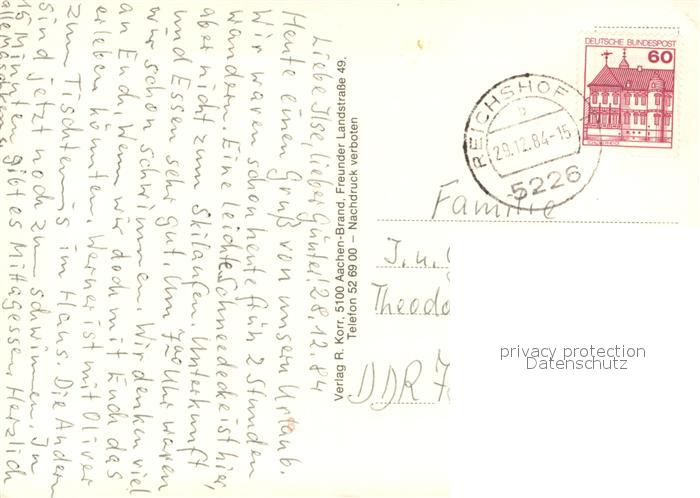 Liebe Ilse, lieber Günter! 28.12.84
Heute einen Gruß von unsern Urlaub.
Wir waren schon heute früh 2 Stunden
wandern. Eine leichte Schneedecke ist hier,
aber nicht zum Skilaufen. Unterkunft
und Essen sehr gut. Um 7.00 Uhr waren
wir schon schwimmen. Wir denken viel
an Euch, wenn wir doch mit Euch das
erleben könnten. Werner ist mit Oliver
zum Tischtennis im Haus. Die Andern
sind jetzt noch zu schwimmen. In
15 Minuten gibt es Mittagessen. Herzlich
Verlag R. Korr, 5100 Aachen-Brand, Freunder Landstraße 49,
Telefon 52 69 00 – Nachdruck verboten
DEUTSCHE BUNDESPOST
60
REICHSHOF
b
29.12.84-15
5226
Familie
J. u.
Theodo
DDR 7
privacy protection
Datenschutz